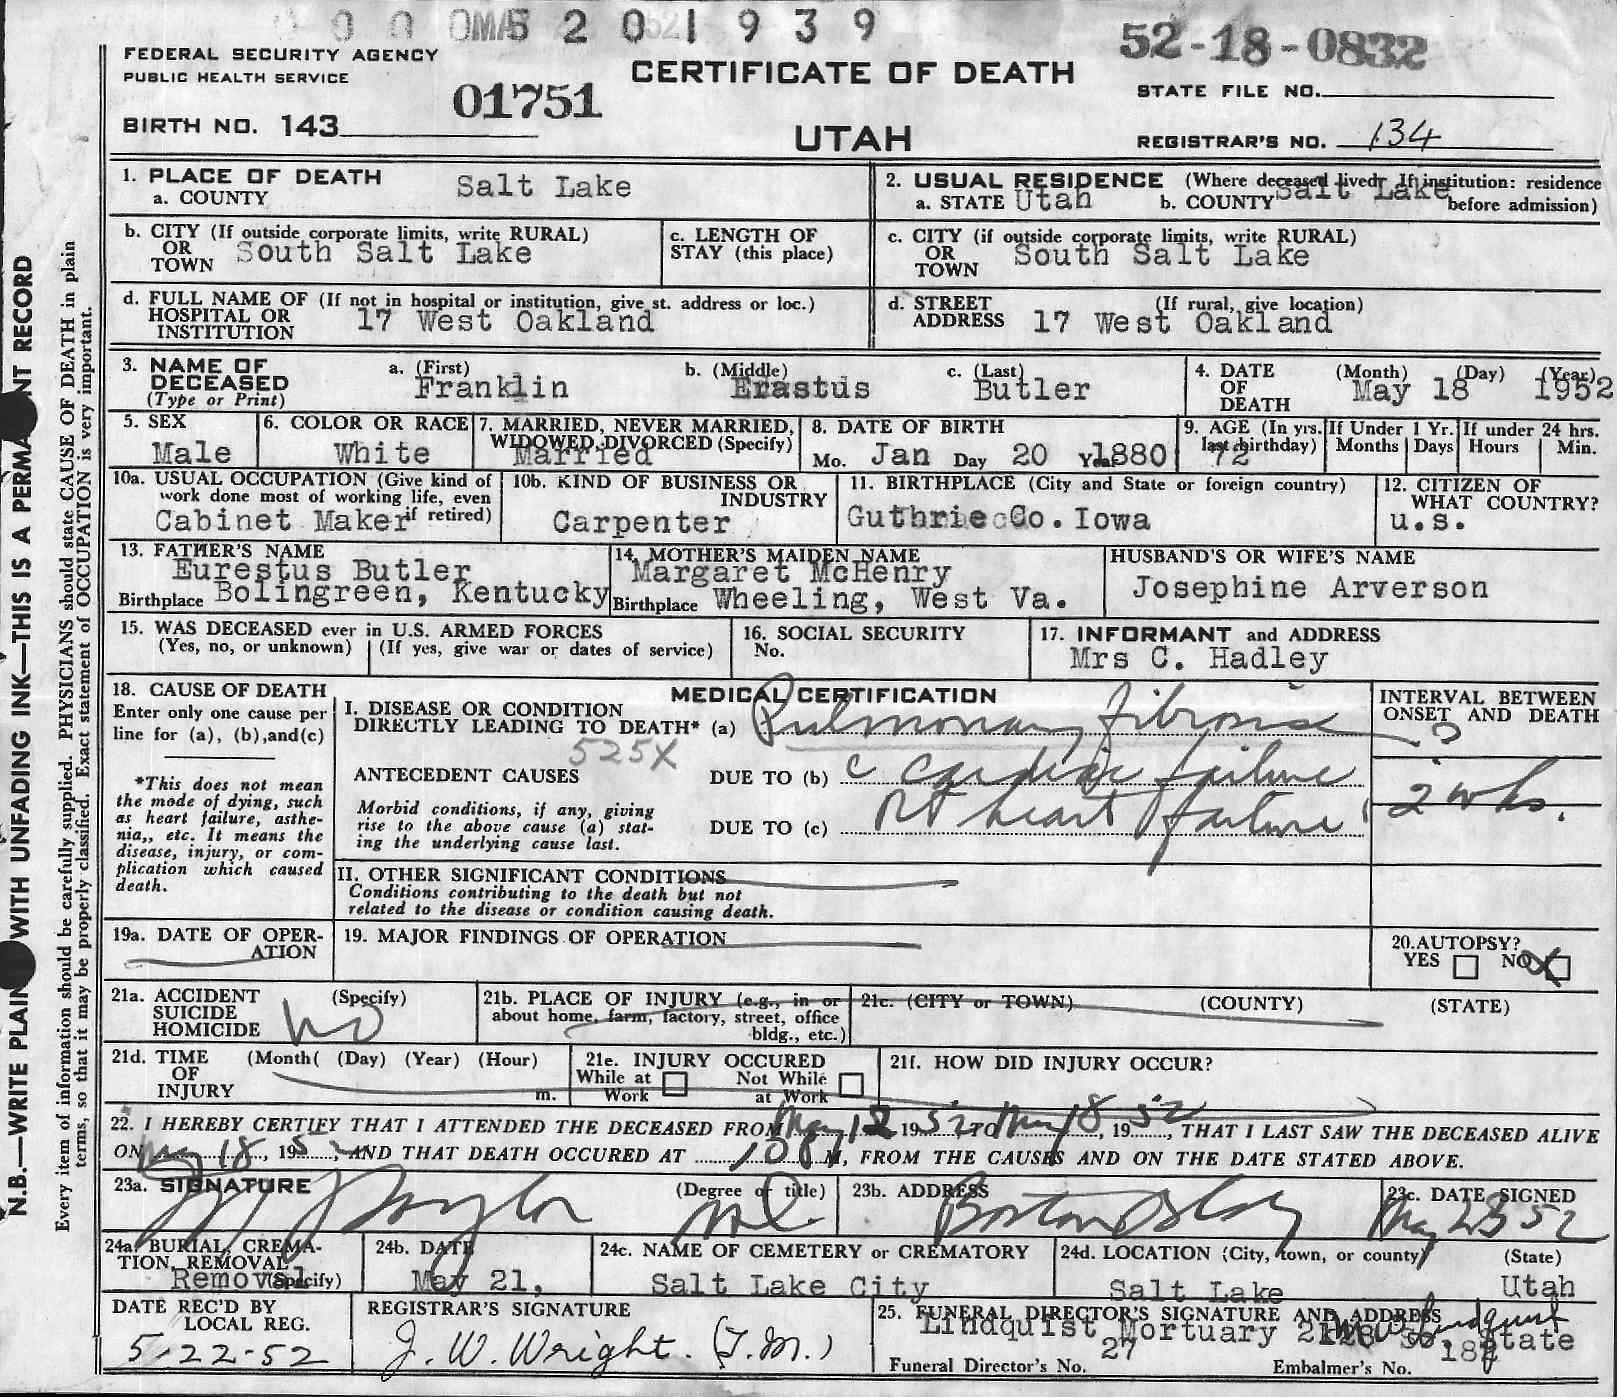 5 2 0 1 9 3 9
52-18-0832
FEDERAL SECURITY AGENCY
PUBLIC HEALTH SERVICE
01751
CERTIFICATE OF DEATH
STATE FILE NO.
BIRTH NO. 143
UTAH
REGISTRAR'S NO. 134
1. PLACE OF DEATH
a. COUNTY Salt Lake
2. USUAL RESIDENCE (Where deceased lived. If institution: residence before admission)
a. STATE Utah b. COUNTY Salt Lake
b. CITY (If outside corporate limits, write RURAL)
OR TOWN South Salt Lake
c. LENGTH OF STAY (this place)
c. CITY (if outside corporate limits, write RURAL)
OR TOWN South Salt Lake
d. FULL NAME OF (If not in hospital or institution, give st. address or loc.)
HOSPITAL OR INSTITUTION 17 West Oakland
d. STREET ADDRESS (If rural, give location)
17 West Oakland
3. NAME OF DECEASED (Type or Print)
a. (First) Franklin
b. (Middle) Erastus
c. (Last) Butler
4. DATE OF DEATH (Month) (Day) (Year)
May 18 1952
5. SEX
Male
6. COLOR OR RACE
White
7. MARRIED, NEVER MARRIED, WIDOWED, DIVORCED (Specify)
Married
8. DATE OF BIRTH
Mo. Jan Day 20 Year 1880
9. AGE (In yrs. last birthday)
72
If Under 1 Yr.
Months Days
If under 24 hrs.
Hours Min.
10a. USUAL OCCUPATION (Give kind of work done most of working life, even if retired)
Cabinet Maker
10b. KIND OF BUSINESS OR INDUSTRY
Carpenter
11. BIRTHPLACE (City and State or foreign country)
Guthrie Co. Iowa
12. CITIZEN OF WHAT COUNTRY?
u.s.
13. FATHER'S NAME
Eurestus Butler
Birthplace Bolingreen, Kentucky
14. MOTHER'S MAIDEN NAME
Margaret McHenry
Birthplace Wheeling, West Va.
HUSBAND'S OR WIFE'S NAME
Josephine Arverson
15. WAS DECEASED ever in U.S. ARMED FORCES
(Yes, no, or unknown) (If yes, give war or dates of service)
16. SOCIAL SECURITY No.
17. INFORMANT and ADDRESS
Mrs C. Hadley
18. CAUSE OF DEATH
Enter only one cause per line for (a), (b), and (c)
*This does not mean the mode of dying, such as heart failure, asthenia,, etc. It means the disease, injury, or complication which caused death.
MEDICAL CERTIFICATION
I. DISEASE OR CONDITION DIRECTLY LEADING TO DEATH* (a) Pulmonary fibrosis
525X
ANTECEDENT CAUSES
DUE TO (b) c cardiac failure
Morbid conditions, if any, giving rise to the above cause (a) stating the underlying cause last.
DUE TO (c) Rt heart failure
INTERVAL BETWEEN ONSET AND DEATH
?
2 wks.
II. OTHER SIGNIFICANT CONDITIONS
Conditions contributing to the death but not related to the disease or condition causing death.
19a. DATE OF OPERATION
19. MAJOR FINDINGS OF OPERATION
20. AUTOPSY?
YES NO X
21a. ACCIDENT SUICIDE HOMICIDE (Specify)
No
21b. PLACE OF INJURY (e.g., in or about home, farm, factory, street, office bldg., etc.)
21c. (CITY or TOWN) (COUNTY) (STATE)
21d. TIME OF INJURY (Month( (Day) (Year) (Hour) m.
21e. INJURY OCCURED
While at Work Not While at Work
21f. HOW DID INJURY OCCUR?
22. I HEREBY CERTIFY THAT I ATTENDED THE DECEASED FROM May 12 1952, TO May 18, 1952, THAT I LAST SAW THE DECEASED ALIVE
ON May 18, 1952, AND THAT DEATH OCCURED AT M, FROM THE CAUSES AND ON THE DATE STATED ABOVE.
23a. SIGNATURE (Degree or title)
Taylor MD
23b. ADDRESS
Boston Bldg
23c. DATE SIGNED
May 52
24a. BURIAL, CREMATION, REMOVAL (Specify)
Removal
24b. DATE
May 21,
24c. NAME OF CEMETERY or CREMATORY
Salt Lake City
24d. LOCATION (City, town, or county) (State)
Salt Lake Utah
DATE REC'D BY LOCAL REG.
5-22-52
REGISTRAR'S SIGNATURE
J. W. Wright. (T.M.)
25. FUNERAL DIRECTOR'S SIGNATURE AND ADDRESS
Lindquist Mortuary So. State
Funeral Director's No. 27
Embalmer's No.
N.B.—WRITE PLAINLY WITH UNFADING INK—THIS IS A PERMANENT RECORD
Every item of information should be carefully supplied. PHYSICIANS should state CAUSE OF DEATH in plain
terms, so that it may be properly classified. Exact statement of OCCUPATION is very important.